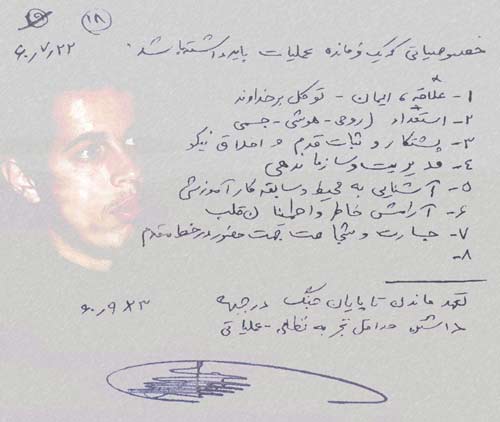 ۱۸
۶۰٫۷٫۲۲
خصوصیاتی که یک فرمانده عملیات باید داشته باشد:
۱- علاقه، ایمان - توکل بر خداوند
۲- استعداد (روحی - هوشی - جسمی
۳- پشتکار و ثبات قدم و اخلاق نیکو
۴- مدیریت و سازماندهی
۵- آشنایی به محیط و سابقه کار آموزشی
۶- آرامش خاطر و اطمینان قلب
۷- جسارت و شجاعت جهت حضور در خط مقدم
۸-
تعهد ماندن تا پایان جنگ در جبهه
۶۰٫۹٫۲۳
داشتن حداقل تجربه نظامی - عملیاتی